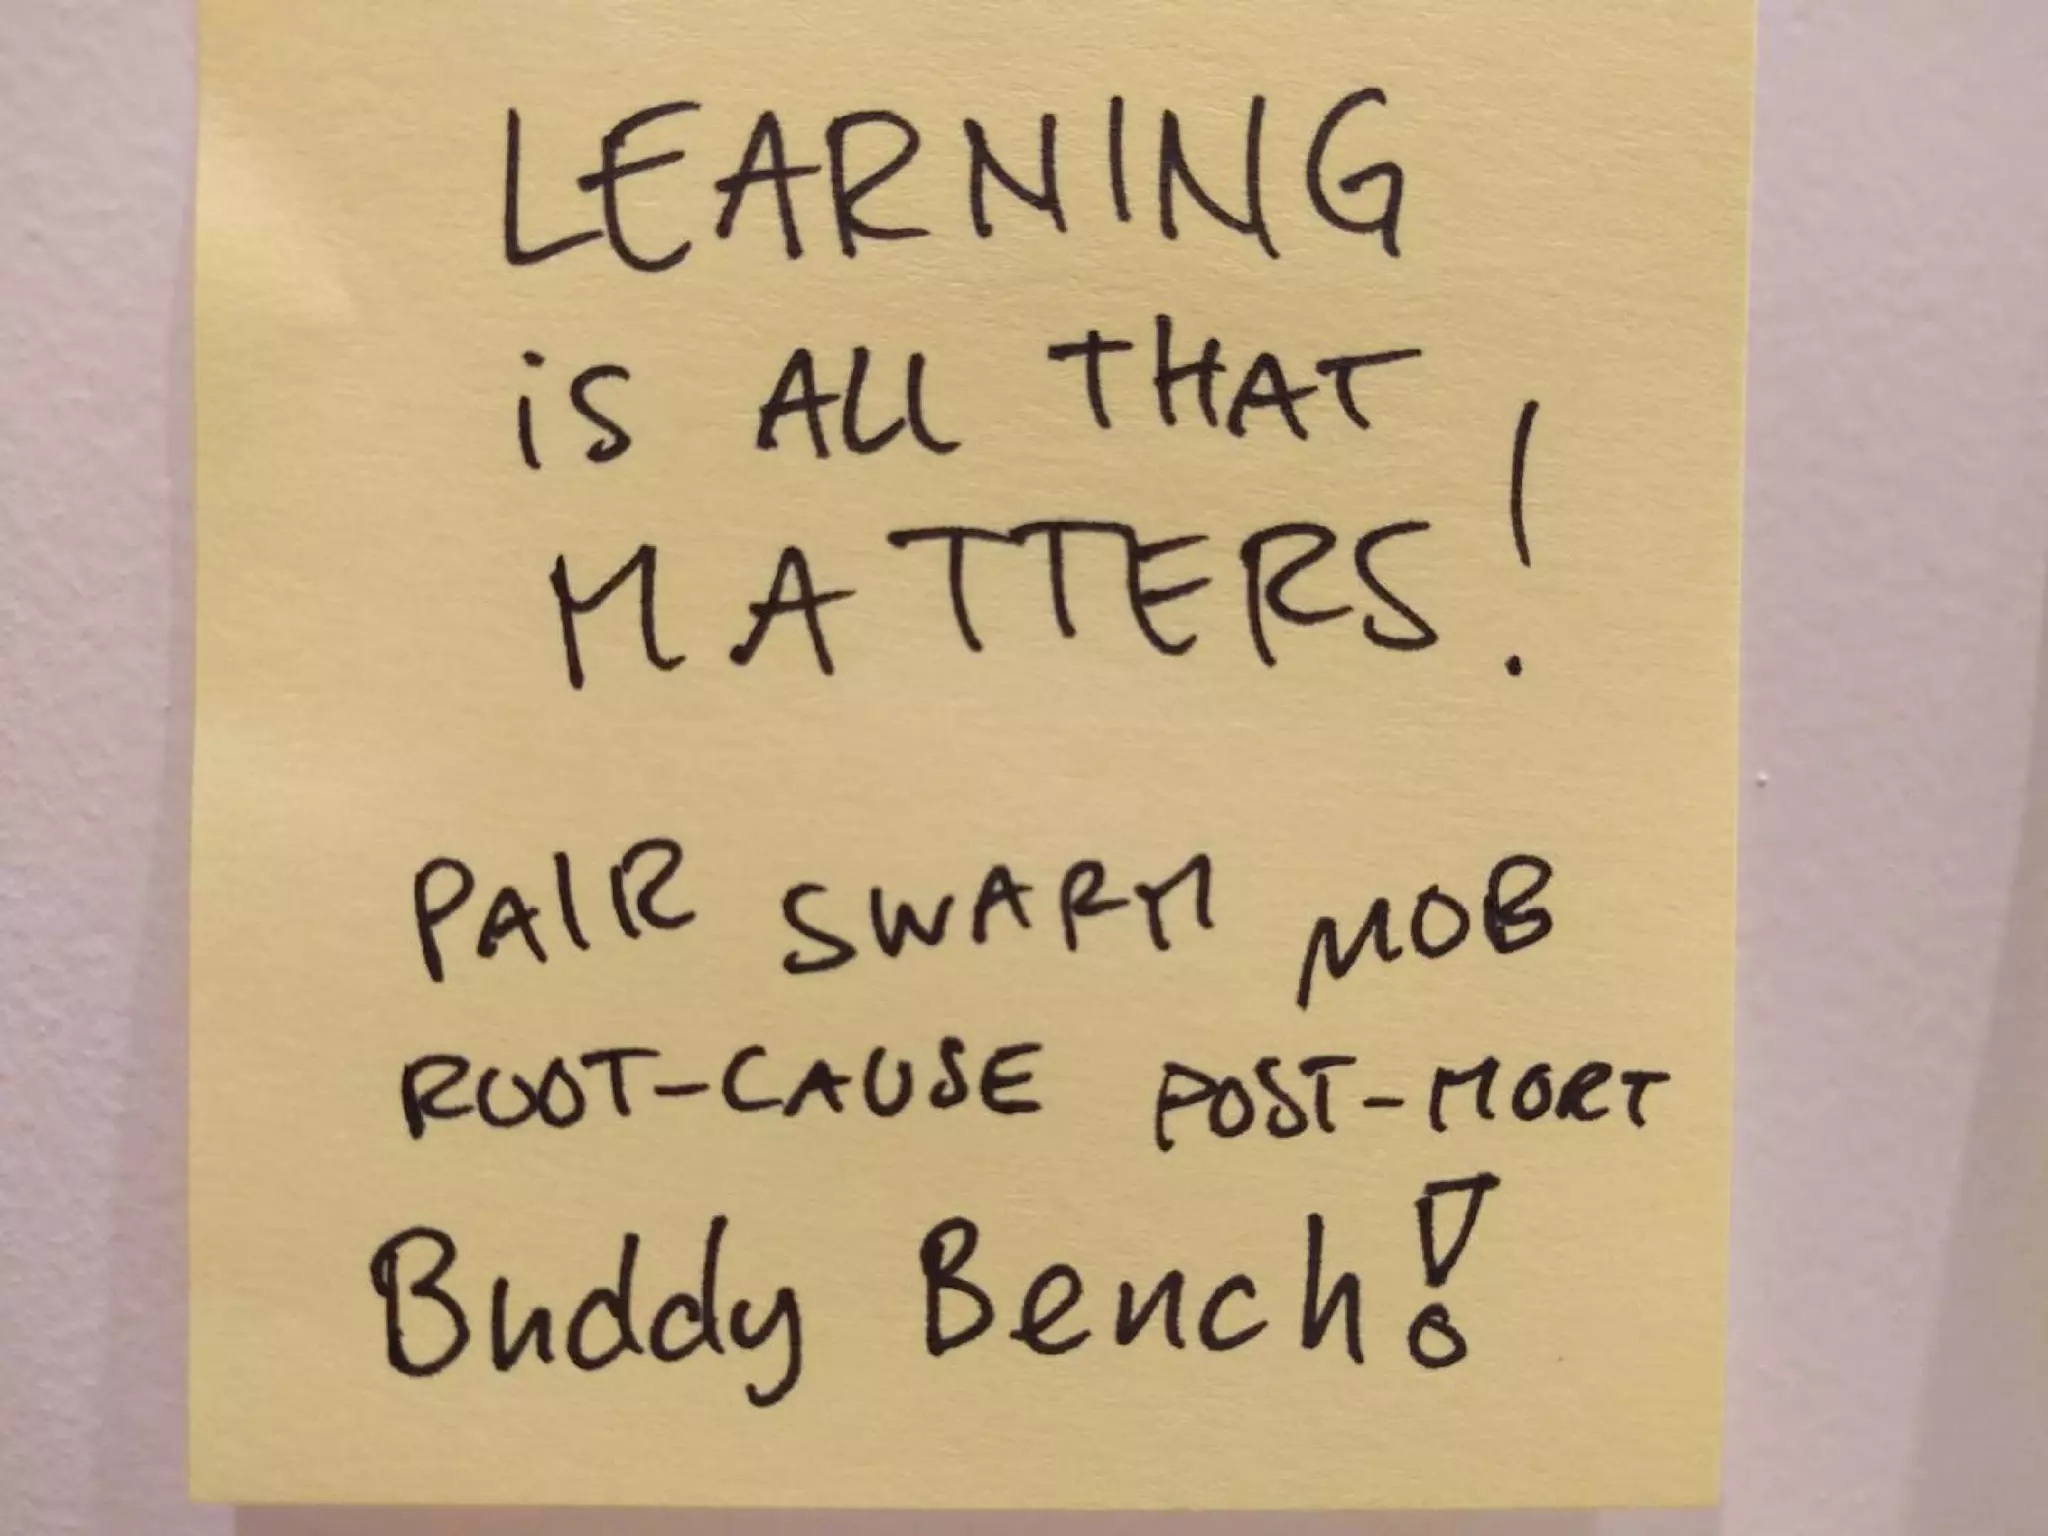 LEARNING
is ALL THAT
MATTERS!
PAIR SWARM MOB
ROOT-CAUSE POST-MORT
Buddy Bench!